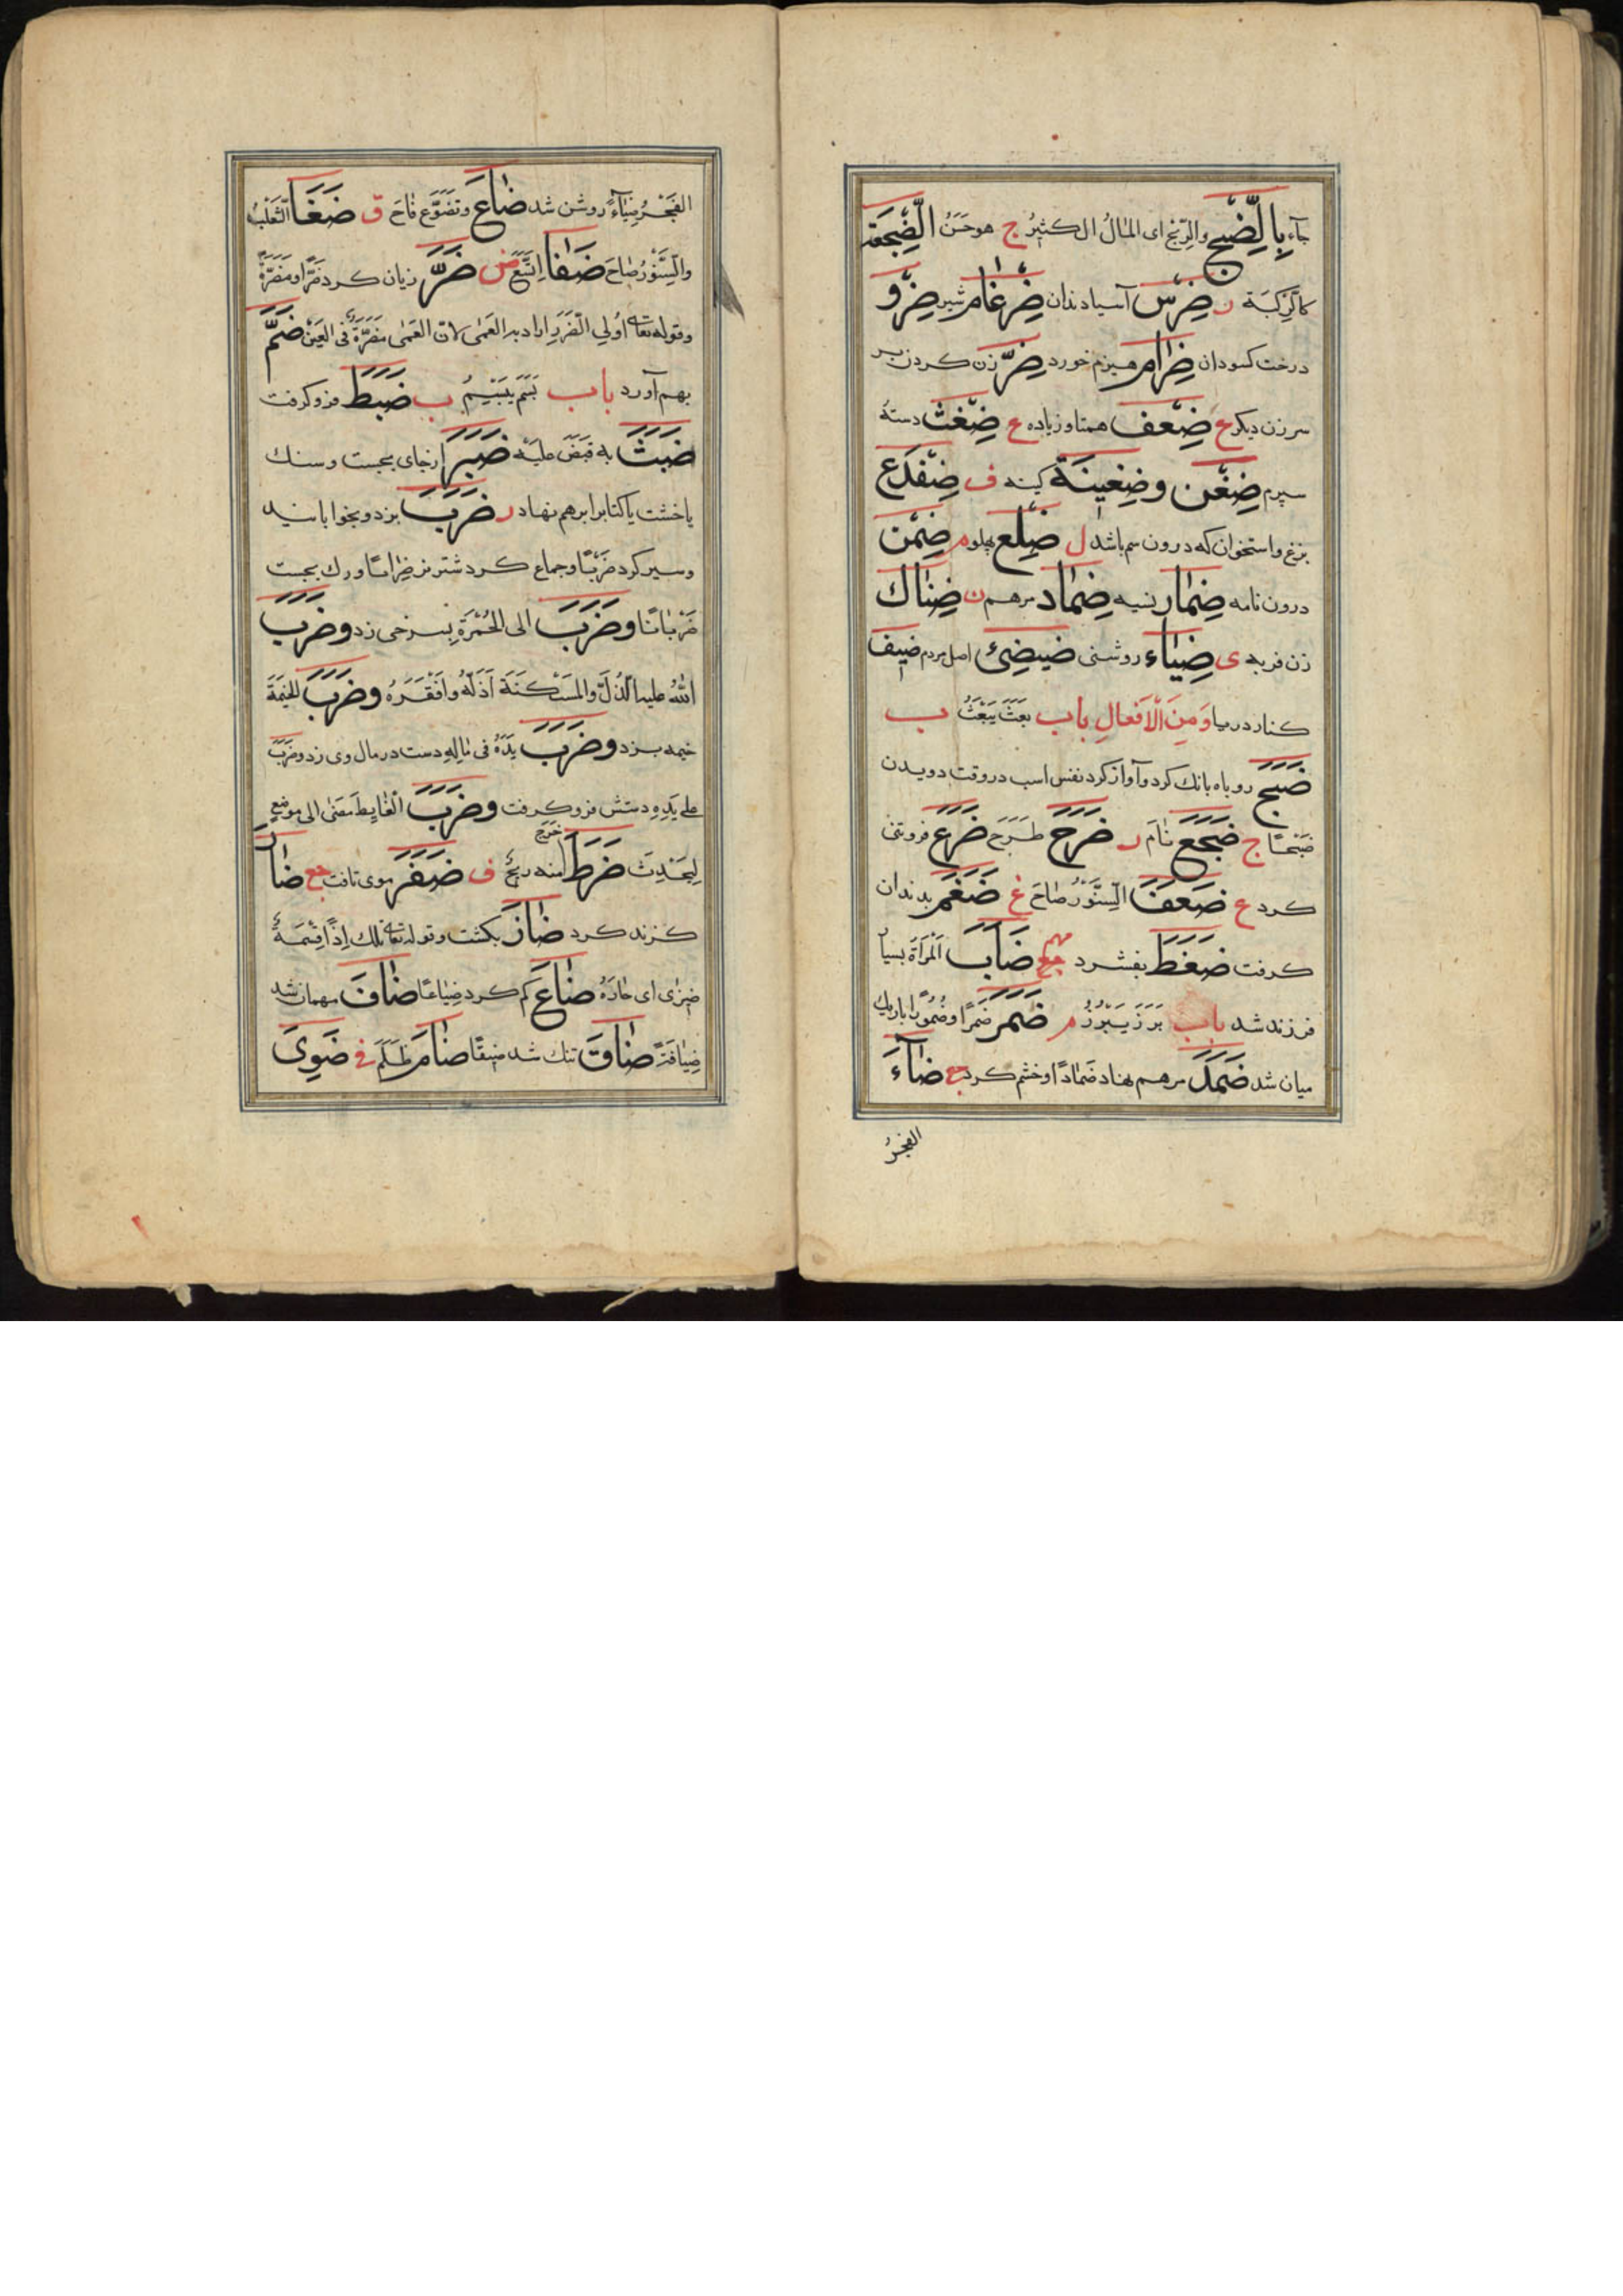 جآء بِالضِّبْحِ والرِّیْحِ ای المالُ الکثیرُ ج هو حَسَنُ الضِّجْعَة
کالرِّکْبَة ر ضِرْس آسیا دندان ضِرْغام شیر ضِرْو
درخت کسودان ضِرَام هیزم خورد ضِرّ زن کردن بر
سر زن دیکر ع ضِعْف همتا و زیاده ع ضِغْث دستهٔ
سپرم ضِغْن وضَغِینَة کینه ف ضِفْدَع
بزغ و استخوان که درون سم باشد ل ضِلْع پهلو م ضِمْن
درون نامه ضِمَار نسیه ضِمَاد مرهم ن ضِنَاك
زن فربه ی ضِیَاء روشنی ضِیضِئ اصل مردم ضیف
کنار دریا وَمِنَ الْاَفعالِ باب بَعَثَ یَبْعَثُ ب
ضَبَحَ روباه بانك کرد و آواز کرد نفس اسب در وقت دویدن
ضَبْحًا ج ضَجَعَ نَامَ ر ضَرَحَ طَرَحَ ضَرَعَ فروتنی
کرد ع ضَعَفَا السِّنَّوْرُ صَاحَ غ ضَغَمَ بدندان
کرفت ضَغَطَ بفشرد ضَابَ المَرْاَةُ بسیار
فرزند شد باب بَرَزَ یَبْرُزُ م ضَمَرَ ضَمرًا وضُمُورًا باریك
میان شد ضَمَدَ مرهم نهاد ضَمَادًا و خشم کرد مع ضَآءَ
الفجرُ
الفَجْرُ ضِیَآءً روشن شد ضَاعَ وتَضَوَّع فَاحَ ق ضَغَا الثَّعْلَبُ
والسِّنَّوْرُ صَاحَ ضَفَا اِتَّسَعَ ض ضَرَّ زیان کرد ضَرًّا ومَضَرَّةً
وقوله تعالی اُولِی الضَّرَرِ اراد به العَمٰی لانّ العَمٰی مَضَرَّةٌ فی العَیْنِ ضَمَّ
بهم آورد باب بَسَمَ یَبْسِمُ ب ضَبَطَ فرو کرفت
ضَبَثَ بهِ قَبَضَ علیْه ضَبَرَ از جای بجست و سنك
یا خشت یا کتاب را بر هم نهاد ر ضَرَبَ بزد و بخوابانید
و سیر کرد ضَرْبًا و جماع کرد شتر نر ضِرَابًا و رك بجست
ضَرَبَانًا وضَرَبَ الی الحُمْرَةِ بسرخی زد وضَرَبَ
اللّٰهُ علیه الذُّلَّ والمَسْکَنَةَ اَذَلَّهُ واَفْقَرَهُ وضَرَبَ الخَیْمَةَ
خیمه بزد وضَرَبَ یَدَهُ فی مَالِهِ دست در مال وی زد وضَرَبَ
علی یَدِهِ دستش فرو کرفت وضَرَبَ الْغَایِطَ مَضٰی الی موضعٍ
لِیُحْدِثَ ضَرَطَ خَرَجَ منه ریحٌ ف ضَفَرَ موی تافت مع ضَارَ
کزند کرد ضَازَ بکشت وقوله تعالی تلك اِذًا قِسْمَةٌ
ضِیزٰی ای جَائرَةٌ ضَاعَ کم کرد ضِیَاعًا ضَافَ مهمان شد
ضِیَافَةً ضَاقَ تنك شد ضیقًا ضَامَ ظَلَمَ فی ضَوِیَ